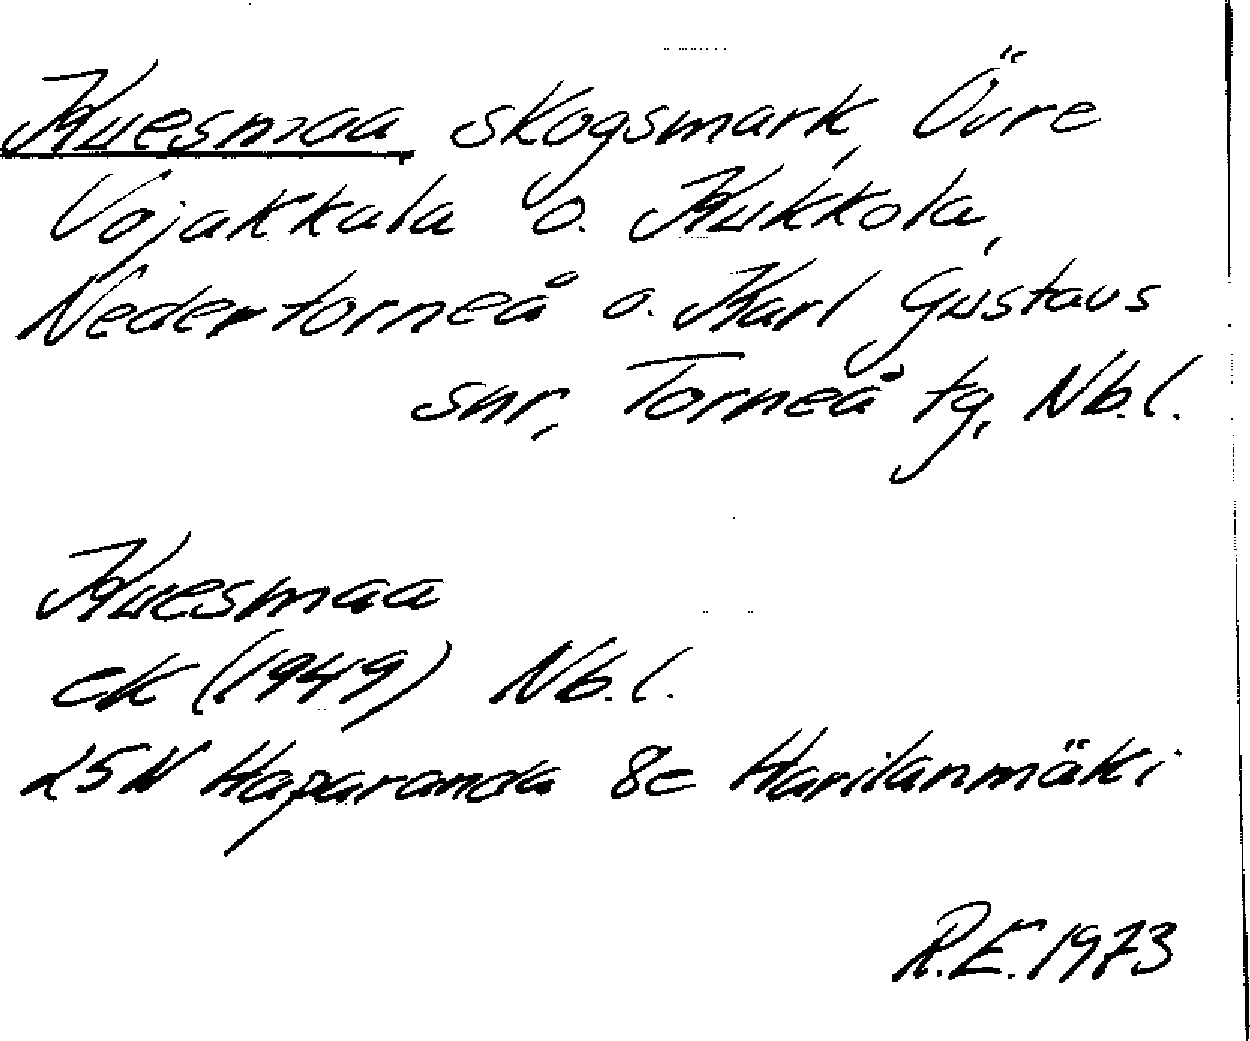 Kuesmaa, skogsmark, Övre
Vojakkala o. Kukkola,
Nedertorneå o. Karl Gustavs
snr, Torneå tg, Nb.l.
Kuesmaa
ek (1949) Nb.l.
25N Haparanda 8e Harilanmäki
R.E. 1973